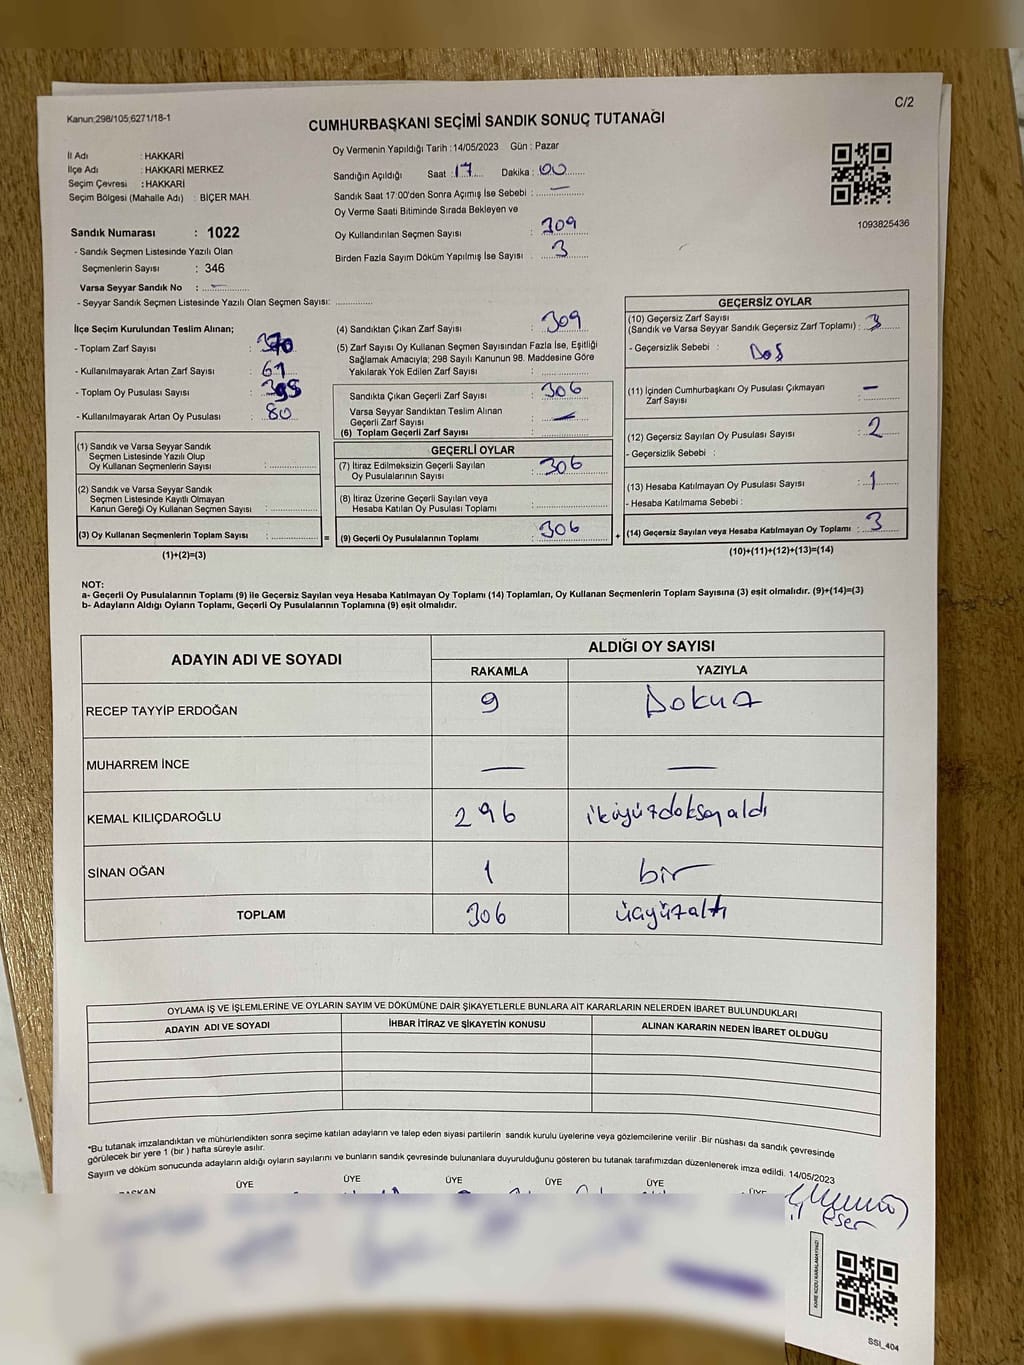 Kanun;298/105;6271/18-1
C/2
CUMHURBAŞKANI SEÇİMİ SANDIK SONUÇ TUTANAĞI
İl Adı : HAKKARİ
İlçe Adı : HAKKARİ MERKEZ
Seçim Çevresi : HAKKARİ
Seçim Bölgesi (Mahalle Adı) : BİÇER MAH.
Sandık Numarası : 1022
- Sandık Seçmen Listesinde Yazılı Olan
Seçmenlerin Sayısı : 346
Varsa Seyyar Sandık No : –
- Seyyar Sandık Seçmen Listesinde Yazılı Olan Seçmen Sayısı:
Oy Vermenin Yapıldığı Tarih :14/05/2023 Gün : Pazar
Sandığın Açıldığı Saat : 17 Dakika : 00
Sandık Saat 17:00'den Sonra Açımış İse Sebebi : –
Oy Verme Saati Bitiminde Sırada Bekleyen ve
Oy Kullandırılan Seçmen Sayısı : 309
Birden Fazla Sayım Döküm Yapılmış İse Sayısı : 3
1093825436
İlçe Seçim Kurulundan Teslim Alınan;
- Toplam Zarf Sayısı : 370
- Kullanılmayarak Artan Zarf Sayısı : 61
- Toplam Oy Pusulası Sayısı :
- Kullanılmayarak Artan Oy Pusulası : 80
(1) Sandık ve Varsa Seyyar Sandık
Seçmen Listesinde Yazılı Olup
Oy Kullanan Seçmenlerin Sayısı :
(2) Sandık ve Varsa Seyyar Sandık
Seçmen Listesinde Kayıtlı Olmayan
Kanun Gereği Oy Kullanan Seçmen Sayısı :
(3) Oy Kullanan Seçmenlerin Toplam Sayısı :
(1)+(2)=(3)
(4) Sandıktan Çıkan Zarf Sayısı : 309
(5) Zarf Sayısı Oy Kullanan Seçmen Sayısından Fazla İse, Eşitliği
Sağlamak Amacıyla; 298 Sayılı Kanunun 98. Maddesine Göre
Yakılarak Yok Edilen Zarf Sayısı :
Sandıkta Çıkan Geçerli Zarf Sayısı : 306
Varsa Seyyar Sandıktan Teslim Alınan
Geçerli Zarf Sayısı : –
(6) Toplam Geçerli Zarf Sayısı :
GEÇERLİ OYLAR
(7) İtiraz Edilmeksizin Geçerli Sayılan
Oy Pusulalarının Sayısı : 306
(8) İtiraz Üzerine Geçerli Sayılan veya
Hesaba Katılan Oy Pusulası Toplamı :
= (9) Geçerli Oy Pusulalarının Toplamı : 306 +
GEÇERSİZ OYLAR
(10) Geçersiz Zarf Sayısı
(Sandık ve Varsa Seyyar Sandık Geçersiz Zarf Toplamı) : 3
- Geçersizlik Sebebi : Boş
(11) İçinden Cumhurbaşkanı Oy Pusulası Çıkmayan
Zarf Sayısı : –
(12) Geçersiz Sayılan Oy Pusulası Sayısı : 2
- Geçersizlik Sebebi :
(13) Hesaba Katılmayan Oy Pusulası Sayısı : 1
- Hesaba Katılmama Sebebi :
(14) Geçersiz Sayılan veya Hesaba Katılmayan Oy Toplamı : 3
(10)+(11)+(12)+(13)=(14)
NOT:
a- Geçerli Oy Pusulalarının Toplamı (9) ile Geçersiz Sayılan veya Hesaba Katılmayan Oy Toplamı (14) Toplamları, Oy Kullanan Seçmenlerin Toplam Sayısına (3) eşit olmalıdır. (9)+(14)=(3)
b- Adayların Aldığı Oyların Toplamı, Geçerli Oy Pusulalarının Toplamına (9) eşit olmalıdır.
ADAYIN ADI VE SOYADI ALDIĞI OY SAYISI
RAKAMLA YAZIYLA
RECEP TAYYİP ERDOĞAN 9 Dokuz
MUHARREM İNCE – –
KEMAL KILIÇDAROĞLU 296 ikiyüzdoksanaldı
SİNAN OĞAN 1 bir
TOPLAM 306 üçyüzaltı
OYLAMA İŞ VE İŞLEMLERİNE VE OYLARIN SAYIM VE DÖKÜMÜNE DAİR ŞİKAYETLERLE BUNLARA AİT KARARLARIN NELERDEN İBARET BULUNDUKLARI
ADAYIN ADI VE SOYADI İHBAR İTİRAZ VE ŞİKAYETİN KONUSU ALINAN KARARIN NEDEN İBARET OLDUĞU
*Bu tutanak imzalandıktan ve mühürlendikten sonra seçime katılan adayların ve talep eden siyasi partilerin sandık kurulu üyelerine veya gözlemcilerine verilir .Bir nüshası da sandık çevresinde
görülecek bir yere 1 (bir ) hafta süreyle asılır.
Sayım ve döküm sonucunda adayların aldığı oyların sayılarını ve bunların sandık çevresinde bulunanlara duyurulduğunu gösteren bu tutanak tarafımızdan düzenlenerek imza edildi. 14/05/2023
BAŞKAN ÜYE ÜYE ÜYE ÜYE ÜYE ÜYE
Eser
KARE KODU KARALAMAYINIZ!
SSI_404